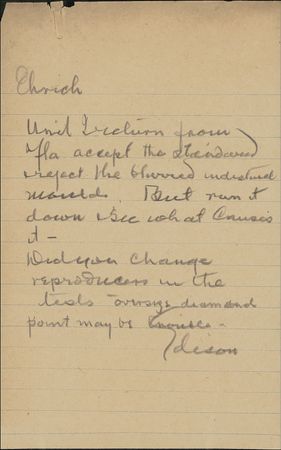 Ehrich
Until I return from
Fla accept the standard
& reject the blurred indistinct
moulds. But run it
down & see what causes
it —
Did you change
reproducers in the
tests oversize diamond
point may be trouble —
Edison